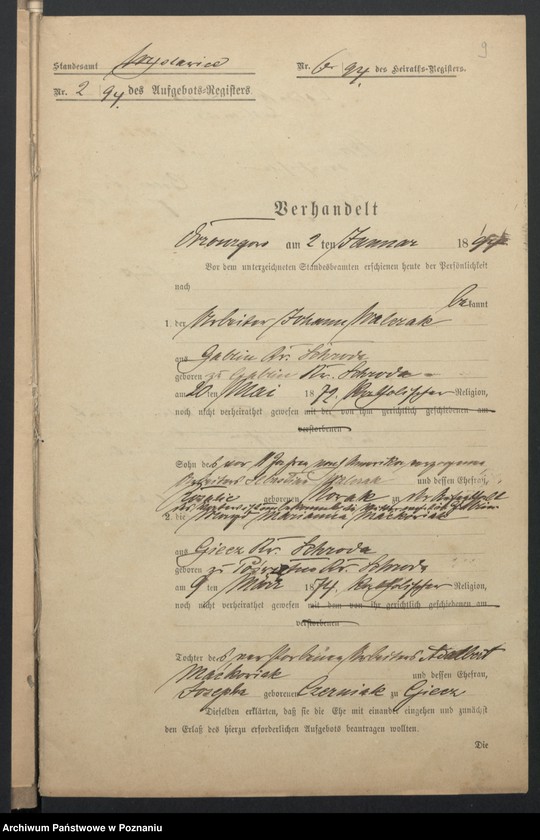 9
Standesamt
Nr. 6 / 94. des Heiraths-Registers.
Nr. 2 / 94. des Aufgebots-Registers.
Verhandelt
am 2 ten Januar 1894
Vor dem unterzeichneten Standesbeamten erschienen heute der Persönlichkeit
nach bekannt
1. der Arbeiter Johann Walczak
aus Gablin Kr. Schroda
geboren zu Gablin Kr. Schroda
am 20 ten Mai 1872. Katholischer Religion,
noch nicht verheirathet gewesen mit der von ihm gerichtlich geschiedenen am
verstorbenen
Sohn des vor Jahren nach Amerika
Arbeiters Walczak und dessen Ehefrau,
Rozalie geborenen Nowak zu
2. die Magd Marianna Maćkowiak
aus Giecz Kr. Schroda
geboren zu Kr. Schroda
am 9 ten März 1874. Katholischer Religion,
noch nicht verheirathet gewesen mit dem von ihr gerichtlich geschiedenen am
verstorbenen
Tochter des verstorbenen Arbeiters Adalbert
Maćkowiak und dessen Ehefrau,
Josepha geborenen Czerniak zu Giecz
Dieselben erklärten, daß sie die Ehe mit einander eingehen und zunächst
den Erlaß des hierzu erforderlichen Aufgebots beantragen wollten.
Die
Archiwum Państwowe w Poznaniu